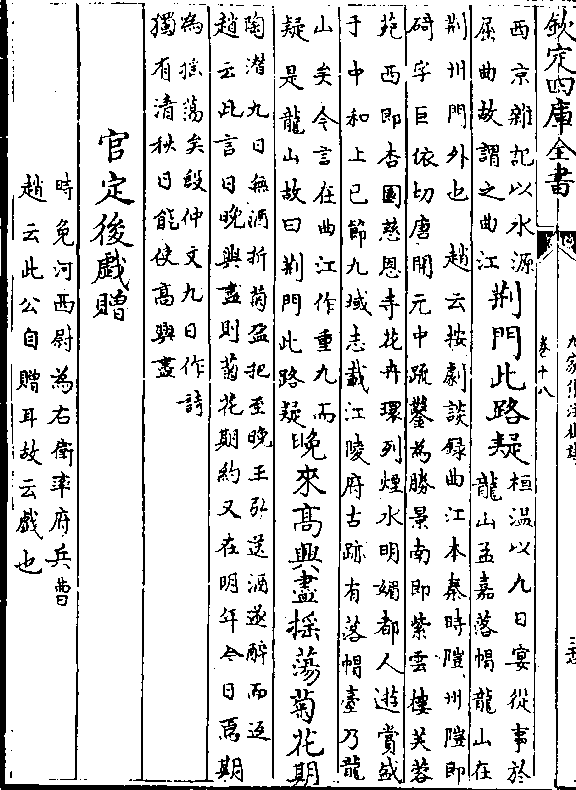 欽定四庫全書
卷十八
西京雜記以水源
屈曲故謂之曲江
荆門此路疑
桓温以九日宴從事於
龍山孟嘉落帽龍山在
荆州門外也 趙云按劇談録曲江本秦時隑州隑即
碕字巨依切唐開元中疏鑿為勝景南即紫雲樓芙蓉
苑西即杏園慈恩寺花卉環列煙水明媚都人遊賞盛
于中和上巳節九域志載江陵府古跡有落帽臺乃龍
山矣今言在曲江作重九而
疑是龍山故曰荆門此路疑
晚來髙興盡揺蕩菊花期
陶潛九日無酒折菊盈把至晚王弘送酒遂醉而返
趙云此言日晚興盡則菊花期約又在明年今日焉期
為揺蕩矣殷仲文九日作詩
獨有清秋日能使髙興盡
官定後戲贈
時免河西尉為右衛率府兵曹
趙云此公自贈耳故云戲也